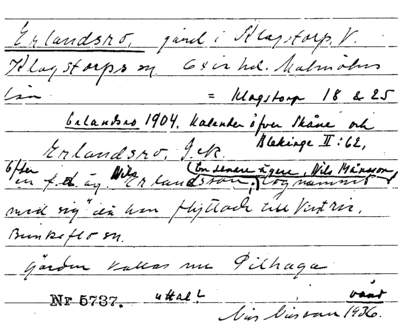 Erlandsro, gård i Klagstorp, V.
Klagstorps sn Oxie hd. Malmöhus
län = Klagstorp 18 & 25
Erlandsro 1904. Kalender öfver Skåne och
Blekinge II: 62,
Erlandsro, J.R.
Efter en f.d. äg. Nils Erlandsson, (En senare ägare, Nils Månsson, tog namnet
med sig" då han flyttade till Vintrie,
Bunkeflo sn.
Gården kallas nu Pilhaga
Nr 5737. uttal? vänt
Nils Nilsson 1936.